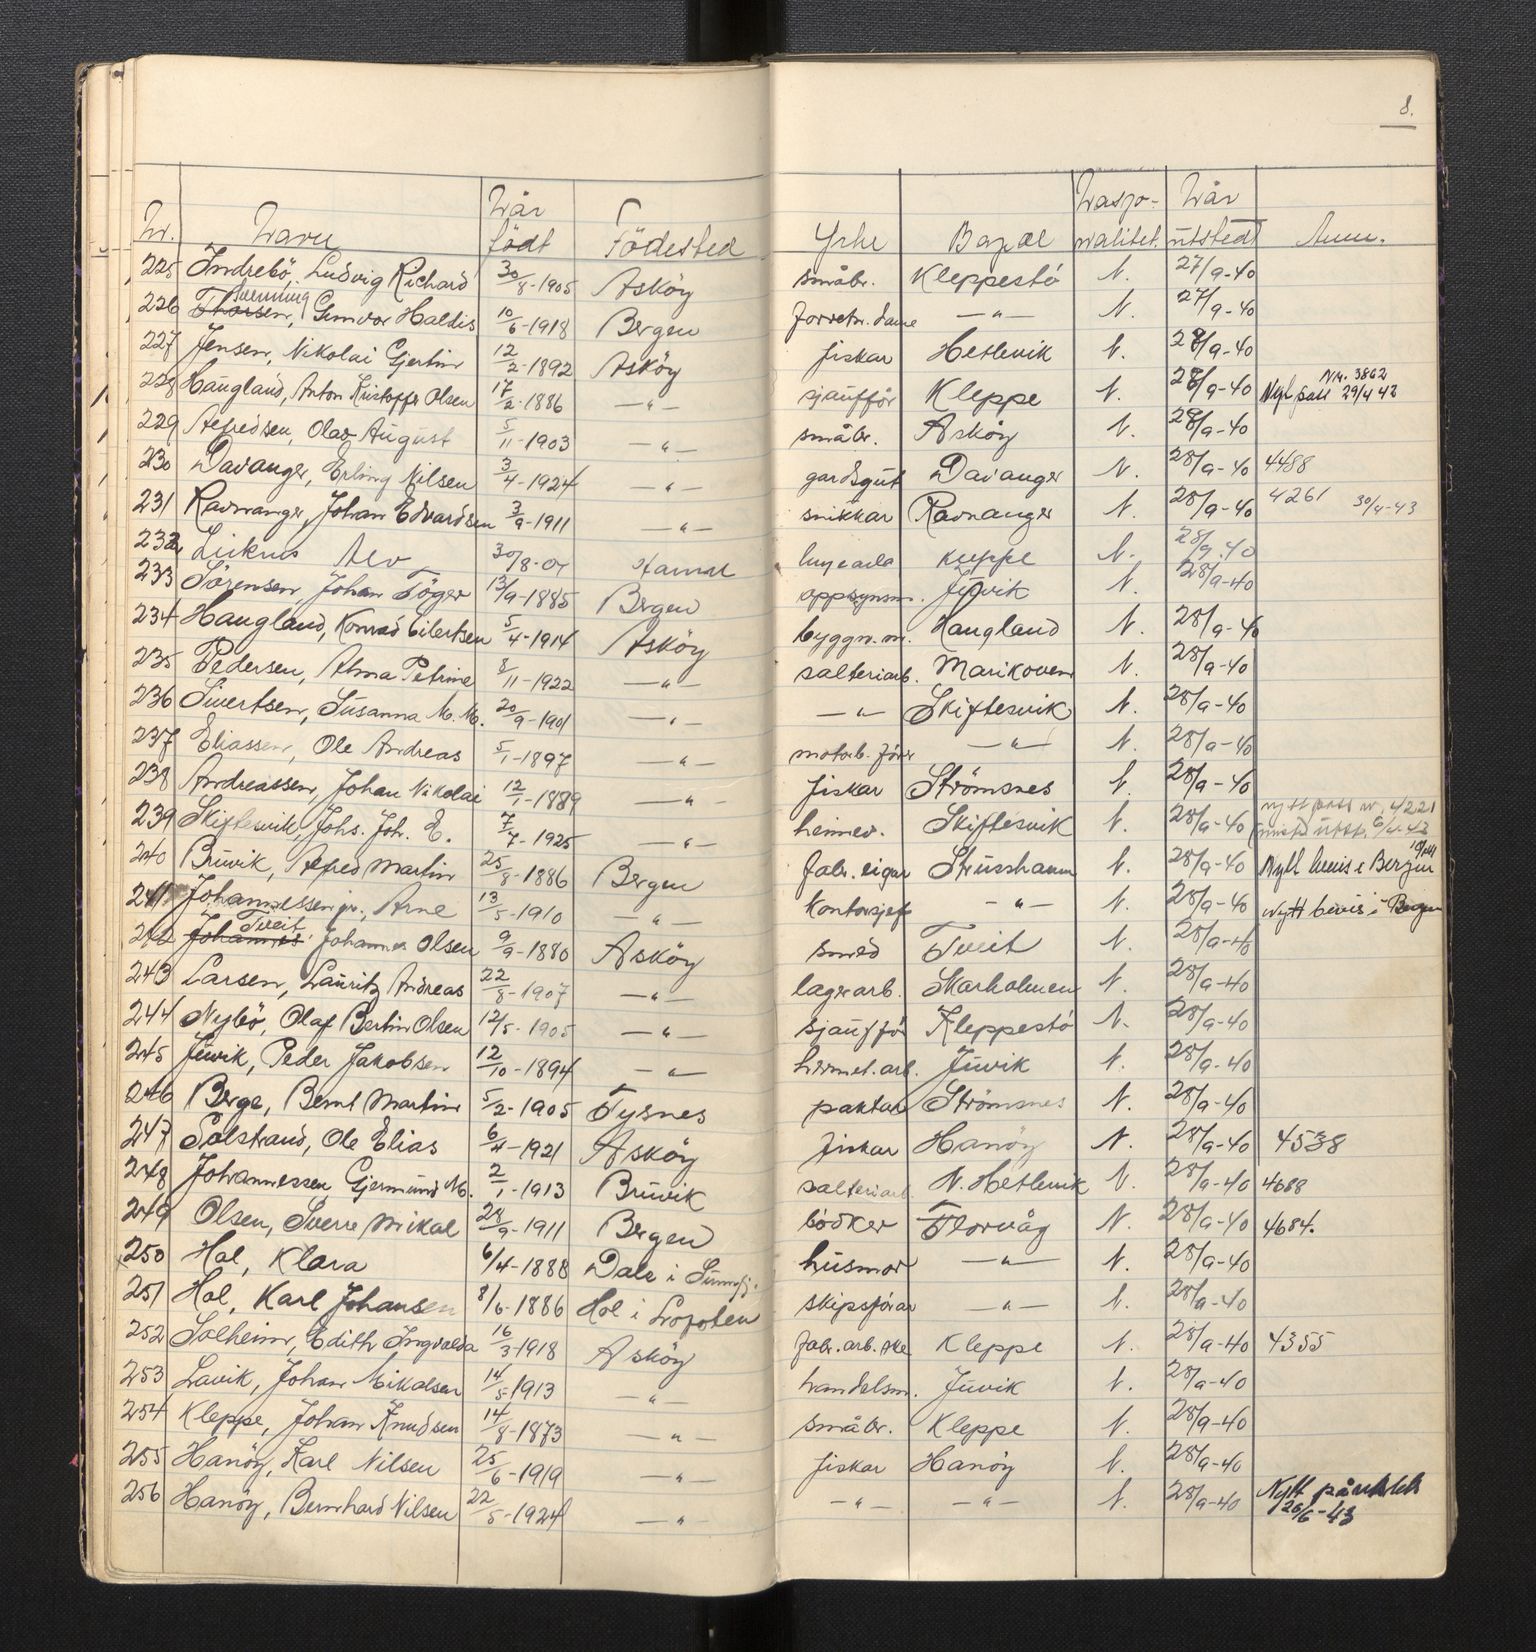 8.
Nr. Navn Når födt Födested Yrke Bopel Nasjonalitet. Når utstedt Anm.
225 Indrebö, Ludvig Richard 30/8-1905 Asköy småbr. Kleppestö N. 27/9-40
226 Thorsen, Svenning Gunvor Haldis 10/6-1918 Bergen forretn.dame —"— N. 27/9-40
227 Jensen, Nikolai Gjertin 12/2-1892 Asköy fiskar Hetlevik N. 28/9-40
228 Haugland, Anton Kristoffer Olsen 17/2-1886 —"— sjaufför Kleppe N. 28/9-40 Nytt pass Nr. 3862 29/4 42
229 Alfredsen, Olav August 5/11-1903 —"— småbr. Asköy N. 28/9-40
230 Davanger, Erling Nilsen 3/4-1924 —"— gardsgut Davanger N. 28/9-40 4488
231 Ravnanger, Johan Edvardsen 3/9-1911 —"— snikkar Ravnanger N. 28/9-40 4261 30/4-43
232 Alv 30/8-07 Hamar Kleppe N. 28/9-40
233 Sörensen, Johan Töger 13/9-1885 Bergen oppsynsm. Juvik N. 28/9-40
234 Haugland, Konrad Eilertsen 5/4-1914 Asköy byggn.m. Haugland N. 28/9-40
235 Pedersen, Alma Petrine 8/11-1922 —"— salteriarb. Marikoven N. 28/9-40
236 Sivertsen, Susanna M. M. 20/9-1901 —"— —"— Skiftesvik N. 28/9-40
237 Eliassen, Ole Andreas 5/1-1897 —"— motorb.förer —"— N. 28/9-40
238 Andreassen, Johan Nikolai 12/1-1889 —"— fiskar Strömsnes N. 28/9-40
239 Skiftesvik, Johs. Joh. E. 7/7-1925 —"— heimev. Skiftesvik N. 28/9-40 nytt pass nr. 4221 mista utst. 6/4-43
240 Bruvik, Alfred Martin 25/8-1886 Bergen fabr.eigar Strusshamn N. 28/9-40 Nytt bevis i Bergen
241 Johannessen jr., Arne 13/5-1910 —"— Kontorsjef —"— N. 28/9-40 Nytt bevis i Bergen
242 Johannes Tveit Johannes Olsen 9/9-1880 Asköy smed Tveit N. 28/9-40
243 Larsen, Lauritz Andreas 22/8-1907 —"— lagerarb. Skarholmen N. 28/9-40
244 Nybö, Olaf Bertin Olsen 12/5-1905 —"— sjaufför Kleppestö N. 28/9-40
245 Juvik, Peder Jakobsen 12/10-1894 —"— hermet.arb. Juvik N. 28/9-40
246 Berge, Bernt Martin 5/2-1905 Tysnes paktar Strömsnes N. 28/9-40
247 Solstrand, Ole Elias 6/4-1921 Asköy fiskar Hanöy N. 28/9-40 4538
248 Johannessen Gjermund M. 2/1-1913 Bruvik salteriarb. N. Hetlevik N. 28/9-40 4688
249 Olsen, Sverre Mikal 24/9-1911 Bergen bödker Florvåg N. 28/9-40 4684.
250 Hol, Klara 6/4-1888 Dale i Sunnfj. husmor —"— N. 28/9-40
251 Hol, Karl Johansen 8/6-1886 Hol i Lofoten skipsförar —"— N. 28/9-40
252 Solheim, Edith Ingvalda 16/3-1918 Asköy fabr.arb.ske Kleppe N. 28/9-40 4355
253 Lavik, Johan Mikalsen 14/5-1913 —"— handelsm. Juvik N. 28/9-40
254 Kleppe, Johan Knudsen 14/8-1873 —"— småbr. Kleppe N. 28/9-40
255 Hanöy, Karl Nilsen 25/6-1919 —"— fiskar Hanöy N. 28/9-40
256 Hanöy, Bernhard Nilsen 22/5-1924 —"— —"— —"— N. 28/9-40 Nytt 26/6-43